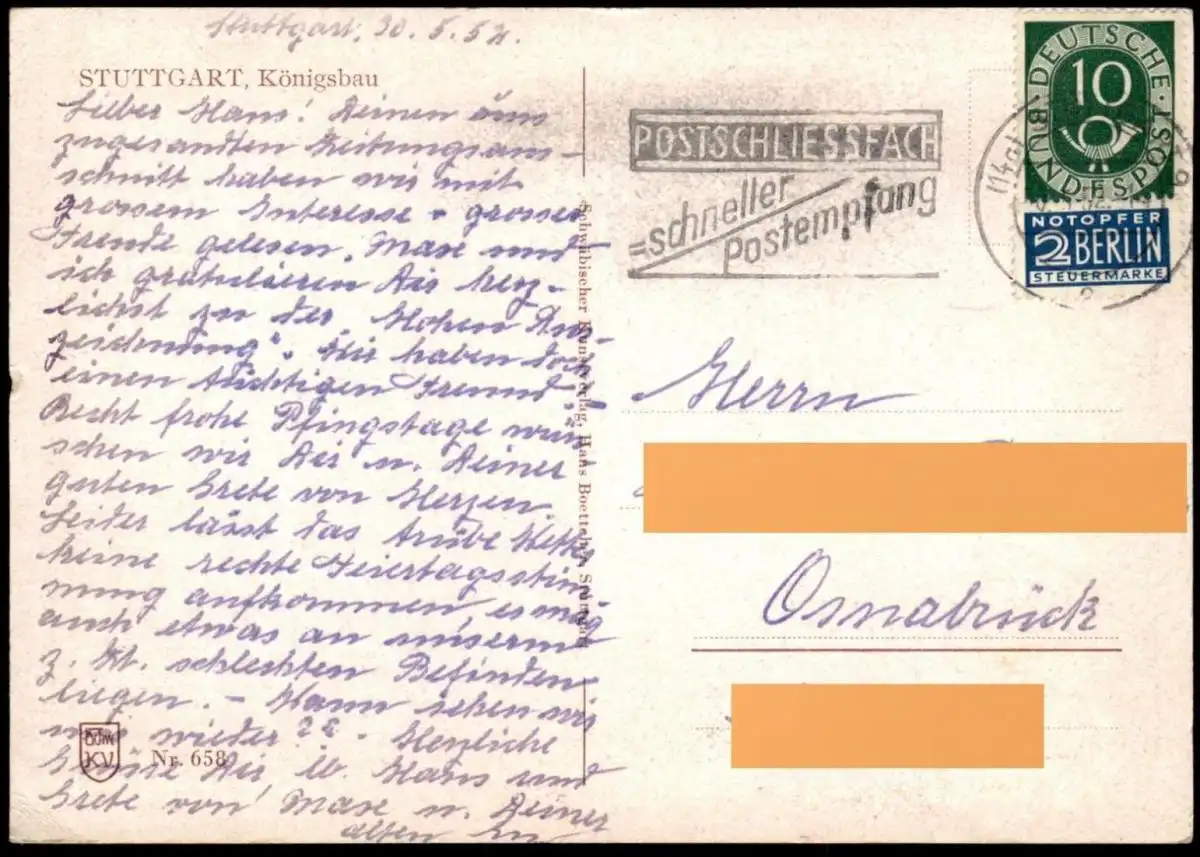 Stuttgart, 30.5.52.
STUTTGART, Königsbau
Lieber Hans! Deinen uns
zugesandten Zeitungsaus-
schnitt haben wir mit
grossem Interesse u. grosser
Freude gelesen. Maxe und
ich gratulieren Dir herz-
lichst zu der "Hohen Aus-
zeichnung". Wir haben doch
einen tüchtigen Freund.
Recht frohe Pfingstage wün-
schen wir Dir u. Deiner
guten Grete von Herzen.
Leider lässt das trübe Wetter
keine rechte Feiertagsstim
mung aufkommen, es mag
auch etwas an unserm
z. Zt. schlechten Befinden
liegen. - Wann sehen wir
uns wieder??. Herzliche
Grüsse Dir lb. Hans und
Grete von Maxe u. Deiner
alten
KV
Nr. 658
Schwäbischer Kunstverlag, Hans Boettcher, Stuttgart
POSTSCHLIESSFACH
=schneller
Postempfang
DEUTSCHE
BUNDESPOST
10
NOTOPFER
2 BERLIN
STEUERMARKE
Herrn
Osnabrück